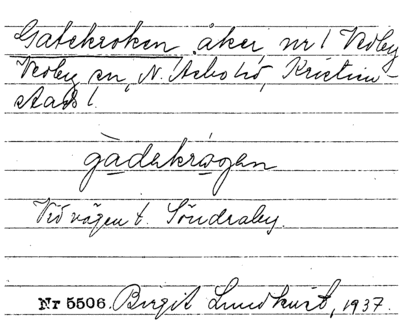 Gatekroken åker nr 1 Vedby
Vedby sn, N. Åsbo hd, Kristian-
stads l.
gàdekrògen
Vid vägen t. Söndraby.
Nr 5506. Birgit Lundkvist, 1937.